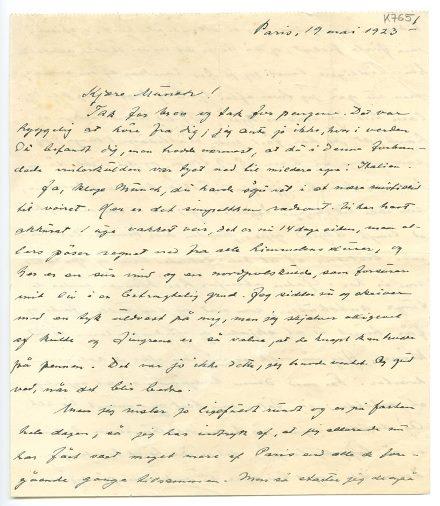 K765
Paris, 19 mai 1923
Kjære Munch!
Tak for brev og tak for pengene. Det var
hyggelig at høre fra dig; jeg ante jo ikke, hvor i verden
du befandt dig, men trodde nærmest, at du i denne
vinterkulden var rejst ned til mildere egne i Italien.
Ja, kloge Munch, du havde også ret i at være
til været. Her er det simpelthen rædsomt. Vi har havt
akkurat 1 uge vakkert veir, det er nu 14 dage siden, men
ellers pøser regnet ned fra alle himmelens, og
her er en sur vind og en nordpolskulde, som
mit liv i en betragtelig grad. Jeg sidder nu og skriver
med en tyk uldvest på mig, men jeg skjælver alligevel
af kulde og fingrene er så valne, at de knapt kan holde
på pennen. Det var jo ikke dette, jeg havde ventet. Og gud
ved, når det blir bedre.
Men jeg maler jo ligefuldt rundt og er på farten
hele dagen, så jeg har indtryk af, at jeg allerede nu
har fået set meget mere af Paris end alle de
foregående gange tilsammen. Men så starter jeg også